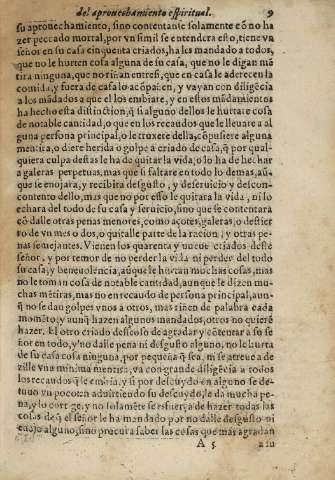 del aprouechamiento espiritual. 9
su aprouechamiento, sino contentarse solamente cõ no ha
zer peccado mortal, por vn simil se entendera esto, tiene vn
señor en su casa cinquenta criados, ha les mandado a todos,
que no le hurten cosa alguna de su casa, que no le digan mẽ
tira ninguna, que no riñan entresi, que en casa le aderecen la
comida, y fuera de casa lo acõpañen, y vayan con diligẽcia
a los mãdados a que el los embiare, y en estos mãdamientos
ha hecho esta distinction, q̃ si alguno dellos le hurtare cosa
de notable cantidad, o que en los recaudos que le lleuare a al
guna persona principal, o le truxere della, cõpusiere alguna
mentira, o diere herida o golpe a criado de casa, q̃ por qual-
quiera culpa destas le ha de quitar la vida, o lo ha de hechar
a galeras perpetuas, mas que si faltare en todo lo demas, aũ-
que se enojara, y recibira desgusto, y deseruicio y descon-
contento dello, mas que no por esso le quitara la vida, ni lo
echara del todo de su casa y seruicio, sino que se contentara
cõ dalle otras penas menores, como açotes, galeras, o destier
ro de vn mes o dos, o quitalle parte de la racion, y otras pe-
nas semejantes. Vienen los quarenta y nueue criados deste
señor, y por temor de no perder la vida ni perder del todo
su casa, y beneuolencia, aũque le hurtan muchas cosas, mas
no le toman cosa de notable cantidad, aunque le dizen mu-
chas mẽtiras, mas no en recaudo de persona principal, aun-
q̃ no se dan golpes vnos a otros, mas riñen de palabra cada
momẽto, y aunq̃ hazen algunos mandados, otros no quierẽ
hazer. El otro criado desseoso de agradar y cõtentar a su se
ñor en todo, y no dalle pena ni desgusto alguno, no le hurta
de su casa cosa ninguna, por pequeña q̃ sea, ni se atreue a de
zille vna minima mentira, va con grande diligẽcia a todos
los recaudos q̃ le embia, y si por descuydo en alguno se de-
tuuo vn poco en aduirtiendo su descuydo, le da mucha pe-
na, y lo corrige, y no solamẽte se esfuerça de hazer todas las
cosas q̃ el señor le ha mandado por no dalle desgusto ni
enojo alguno, sino procura saber las cosas que mas agradan
A 5 a su